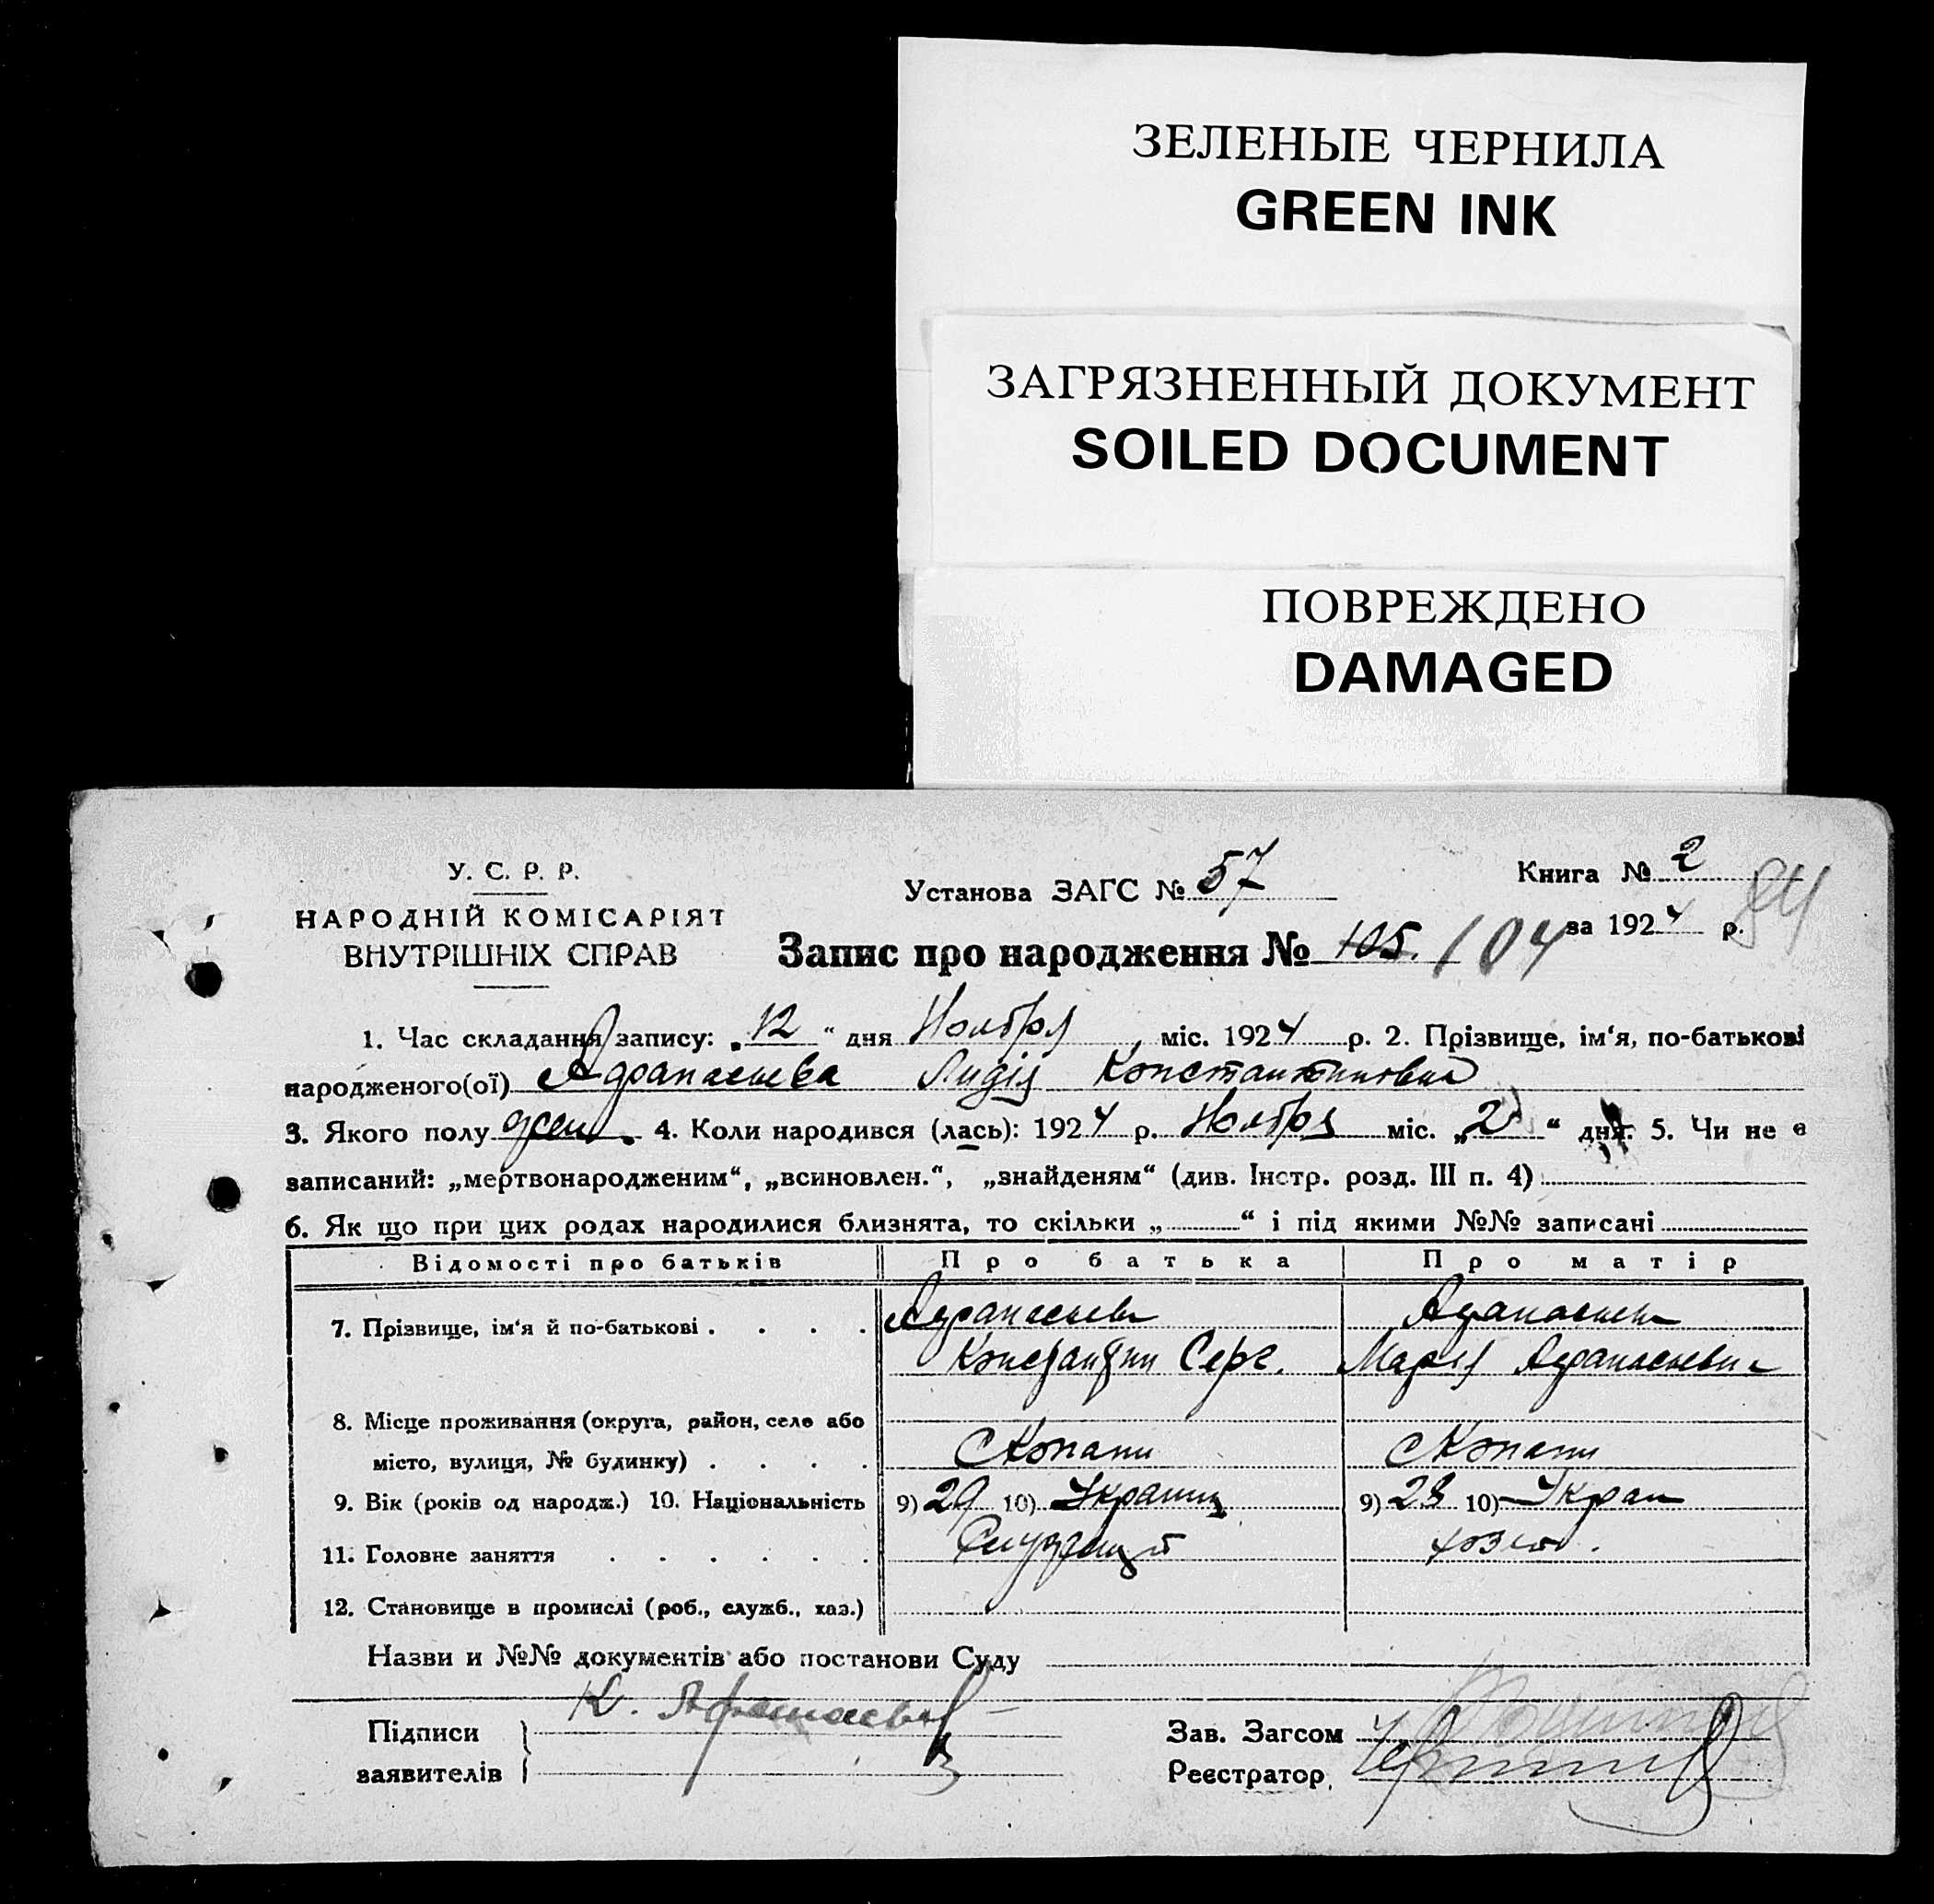 ЗЕЛЕНЫЕ ЧЕРНИЛА
GREEN INK
ЗАГРЯЗНЕННЫЙ ДОКУМЕНТ
SOILED DOCUMENT
ПОВРЕЖДЕНО
DAMAGED
У. С. Р. Р.
НАРОДНІЙ КОМІСАРІЯТ
ВНУТРІШНІХ СПРАВ
Установа ЗАГС № 57
Книга № 2
за 1924 р. 84
Запис про народження № 105. 104
1. Час складання запису: „12“ дня Ноября міс. 1924 р. 2. Прізвище, ім‘я, по-батькові
народженого(ої) Афанасьева Лидія Константиновна
3. Якого полу жен. 4. Коли народився (лась): 1924 р. Ноября міс. „2“ дня. 5. Чи не є
записаний: „мертвонародженим“, „всиновлен.“, „знайденям“ (див. Інстр. розд. III п. 4)
6. Як що при цих родах народилися близнята, то скільки „ “ і під якими №№ записані
Відомості про батьків Про батька Про матір
7. Прізвище, ім‘я й по-батькові . . . . Афанасьев Афанасьева
Константин Серг. Мария Афанасьевна
8. Місце проживання (округа, район, село або
місто, вулиця, № будинку) . . . . С Копани С Копани
9. Вік (років од народж.) 10. Національність 9) 29 10) Украинц 9) 28 10) Украи
11. Головне заняття . . . . . . Служащий хозяй.
12. Становище в промислі (роб., служб., хаз.)
Назви и №№ документів або постанови Суду
Підписи
заявителів
К. Афанасьев
Зав. Загсом
Реєстратор,